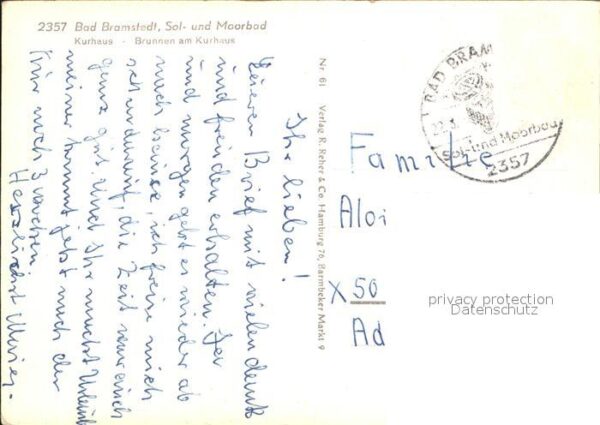 2357 Bad Bramstedt, Sol- und Moorbad
Kurhaus - Brunnen am Kurhaus
Ihr lieben!
Eueren Brief mit vielen dank
und freuden erhalten. Ser
und morgen geht es wieder ab
nach heinse, ich freue mich
schon die Zeit war auch
ganz gut. Und Ihr macht Urlaub
meiner kommt jetzt nach der
Kur noch 3 wochen.
Herzlichst
Nr. 61 Verlag R. Reher & Co. Hamburg 76, Barmbeker Markt 9
BAD BRAM
22.
Sol- und Moorbad
2357
Familie
Aloi
X 50
Ad
privacy protection
Datenschutz